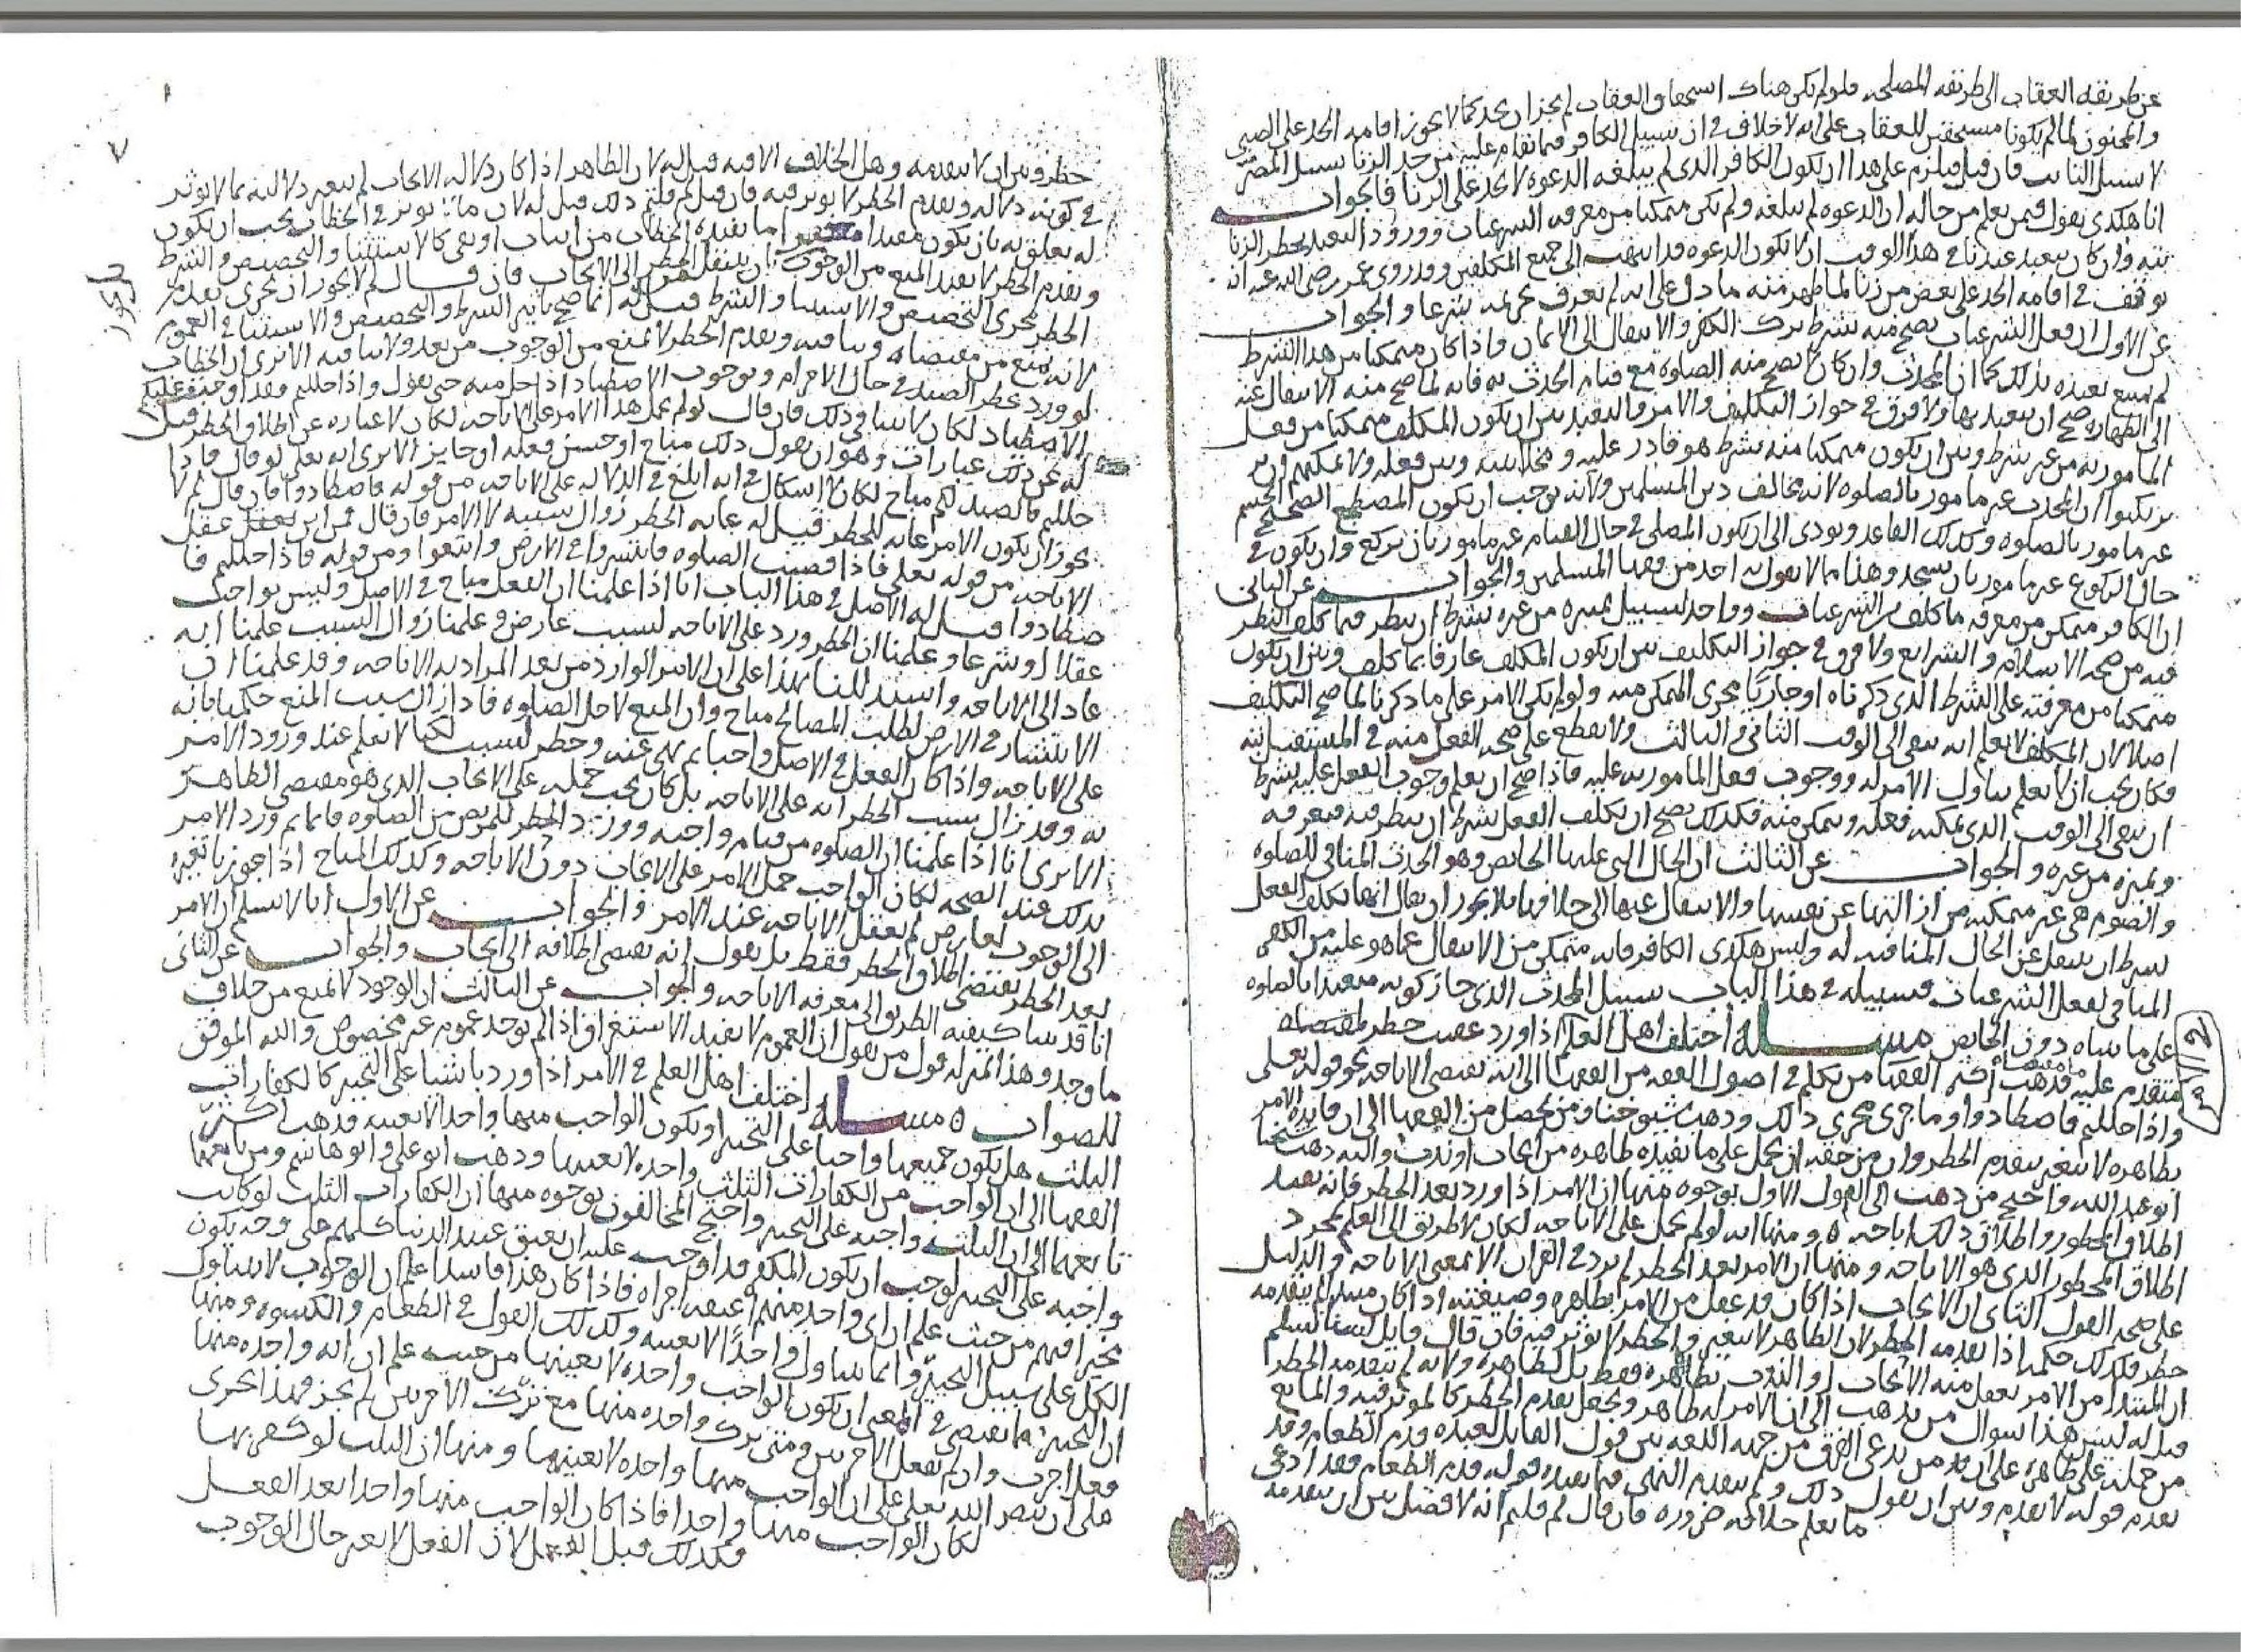 عن طريقة العقاب الى طريقة المصلحة فلو لم يكن هناك استحقاق العقاب لم يجز ان يحد كما لا يجوز اقامة الحد على الصبي
والمجنون لما لم يكونا مستحقين للعقاب على انه لا خلاف في ان سبيل الكافر فيما تقام عليه من حد الزنا سبيل المصر
لا سبيل التائب فان قيل فيلزم على هذا ان يكون الكافر الذي لم يبلغه الدعوة لا يحد على الزنا فالجواب
انا هكذى نقول فيمن يعلم من حاله ان الدعوة لم تبلغه ولم يكن متمكنا من معرفة الشرعيات وورود التعبد بحظر الزنا
وان كان يبعد عندنا في هذا الوقت ان لا يكون الدعوة قد انتهت الى جميع المكلفين وقد روي عن عمر رضي الله عنه انه
توقف في اقامة الحد على بعض من زنا لما ظهر منه ما دل على انه لم يعرف تحريمه شرعا والجواب
عن الاول ان فعل الشرعيات يصح منه بشرط ترك الكفر والانتقال الى الايمان واذا كان متمكنا من هذا الشرط
لم يمتنع تعبده بذلك كما ان المحدث وان كان لا يصح منه الصلوة مع قيام الحدث به فانه لما صح منه الانتقال عنه
الى الطهارة صح ان يتعبد بها ولا فرق في جواز التكليف والامر والتعبد بين ان يكون المكلف متمكنا من فعل
المامور به من غير شرط وبين ان يكون متمكنا منه بشرط هو قادر عليه و وبين فعله ولا يمكنهم ان
يرتكبوا ان المحدث غير مامور بالصلوة لانه مخالف دين المسلمين ولانه يوجب ان يكون المضطجع الصحيح الجسم
غير مامور بالصلوة وكذلك القاعد ويودي الى ان يكون المصلي في حال القيام غير مامور بان يركع وان يكون في
حال الركوع غير مامور بان يسجد وهذا مما لا يقول به احد من فقها المسلمين والجواب عن الثاني
ان الكافر متمكن من معرفة ما كلف من الشرعيات وواجد لسبيل تميزه من غيره بشرط ان ينظر فيما كلف النظر
فيه من صحة الاسلام والشرايع ولا فرق في جواز التكليف بين ان يكون المكلف عارفا بما كلف وبين ان يكون
متمكنا من معرفته على الشرط الذي ذكرناه او جاريا مجرى المتمكن منه ولو لم يكن الامر على ما ذكرنا لما صح التكليف
اصلا لان المكلف لا يعلم انه يبقى الى الوقت الثاني والثالث ولا يقطع على صحة الفعل منه في المستقبل
فكان يجب ان لا يعلم تناول الامر له ووجوب فعل المامور به عليه فاذا صح ان يعلم وجوب الفعل عليه بشرط
ان يبقى الى الوقت الذي يمكنه فعله ويتمكن منه فكذلك يصح ان يكلف الفعل بشرط ان ينظر فيه فيعرفه
ويميزه من غيره والجواب عن الثالث ان الحال التي عليها الحائض وهو الحدث المنافي للصلوة
والصوم هي غير متمكنة من ازالتها عن نفسها والانتقال عنها الى خلافها فلا يجوز ان يقال انها تكلف الفعل
بشرط ان تنتقل عن الحال المنافية له وليس هكذى الكافر فانه متمكن من الانتقال عما هو عليه من الكفر
المنافي لفعل الشرعيات فسبيله في هذا الباب سبيل المحدث الذي جاز كونه متعبدا بالصلوة
على ما بيناه دون الحائض مسألة اختلف اهل العلم اذا ورد عقيب حظر
متقدم عليه فذهب اكثر الفقها من تكلم في اصول الفقه من الفقها الى انه يقتضي الاباحة نحو قوله تعالى
واذا حللتم فاصطادوا وما جرى مجرى ذلك وذهب شيوخنا ومن يحصل من الفقها الى ان فايدة الامر
بظاهره لا تتغير بتقدم الحظر وان من حقه ان يحمل على ما يفيده ظاهره من ايجاب او ندب واليه ذهب شيخنا
ابو عبد الله واحتج من ذهب الى القول الاول بوجوه منها ان الامر اذا ورد بعد الحظر فانه يفيد
اطلاق المحظور واطلاق ذلك اباحة ومنها انه لو لم يحمل على الاباحة لكان لا طريق الى العلم بمجرد
اطلاق المحظور الذي هو الاباحة ومنها ان الامر بعد الحظر لم يرد في القران الا بمعنى الاباحة والدليل
على صحة القول الثاني ان الايجاب اذا كان قد عقل من الامر بظاهره وصيغته اذا كان مبتدأ لم يتقدمه
حظر فكذلك حكمه اذا تقدمه الحظر لان الظاهر لا يتغير والحظر لا يؤثر فيه فان قال قايل لسنا نسلم
ان المبتدأ من الامر يعقل منه الايجاب او الندب بظاهره فقط بل لظاهره ولانه لم يتقدمه الحظر
قيل له ليس هذا سوال من يذهب الى ان الامر له ظاهر ويجعل تقدم الحظر كالموثر فيه والمانع
من حمله على ظاهره على ان من يدعي الفرق من جهة اللغة بين قول القايل لعبده قدم الطعام وقد
تقدم قوله لا تقدم وبين ان يقول ذلك ولم يتقدمه النهي فيما يفيده قوله قدم الطعام فقد ادعى
ما يعلم خلافه ضرورة فان قال لم قلتم انه لا فصل بين ان يتقدمه
حظر وبين ان لا يتقدمه وهل الخلاف الا فيه قيل له لان الظاهر اذا كان دلالة الايجاب لم يتغير دلالته بما لا يوثر
في كونه دلالة وتقدم الحظر لا يوثر فيه فان قيل لم قلتم ذلك قيل له لان ما يوثر في الخطاب يجب ان يكون
له تعلق به بان يكون مفيدا ما يفيده الخطاب من ايجاب او نفي كالاستثنا والتخصيص والشرط
وتقدم الحظر لا يفيد المنع من الوجوب ان ينتقل الحظر الى الايجاب فان قال لم لا يجوز ان يجرى تقدم
الحظر مجرى التخصيص والاستثنا والشرط قيل له انما صح تاثير الشرط والتخصيص والاستثنا في العموم
لانه يمنع من مقتضاه وينافيه وتقدم الحظر لا يمنع من الوجوب من بعد ولا ينافيه الا ترى ان الخطاب
لو ورد بحظر الصيد في حال الاحرام وبوجوب الاصطياد اذا حل منه حتى يقول واذا حللتم فقد اوجبت عليكم
الاصطياد لكان لا ينافي ذلك فان قال لو لم يحمل هذا الامر على الاباحة لكان لا عبارة عن اطلاق الحظر قيل
له عن ذلك عبارات وهو ان يقول ذلك مباح او حسن فعله او جايز الا ترى انه تعالى لو قال فاذا
حللتم فالصيد لكم مباح لكان لا اشكال في انه ابلغ في الدلالة على الاباحة من قوله فاصطادوا فان قال لم لا
يجوز ان يكون الامر غاية للحظر قيل له غاية الحظر زوال سببه لا الامر فان قال فمن اين عقل
الاباحة من قوله تعلى فاذا قضيت الصلوة فانتشروا في الارض وابتغوا ومن قوله فاذا حللتم فا
صطادوا قيل له الاصل في هذا الباب انا اذا علمنا ان الفعل مباح في الاصل وليس بواجب
عقلا او شرعا وعلمنا ان الحظر ورد على الاباحة لسبب عارض وعلمنا زوال السبب علمنا انه
عاد الى الاباحة واستدللنا بهذا على ان الامر الوارد من بعد المراد به الاباحة وقد علمنا ان
الانتشار في الارض لطلب المصالح مباح وان المنع لاجل الصلوة فاذا زال سبب المنع حكمنا بانه
على الاباحة واذا كان الفعل في الاصل واجبا ثم نهي عنه وحظر لسبب لكنا لا نعلم عند ورود الامر
به وقد زال سبب الحظر انه على الاباحة بل كان يجب حمله على الايجاب الذي هو مقتضى الظاهر
الا ترى انا اذا علمنا ان الصلوة من قيام واجبة وورد الحظر للمريض من الصلوة قايما ثم ورد الامر
بذلك عند الصحة لكان الواجب حمل الامر على الايجاب دون الاباحة وكذلك المباح اذا جوزنا تغيره
الى الوجوب لعارض لم يعقل الاباحة عند الامر والجواب عن الاول انا لا نسلم ان الامر
بعد الحظر يقتضي اطلاق الحظر فقط بل نقول انه يقتضي اطلاقه الى ايجاب والجواب عن الثاني
انا قد بينا كيفية الطريق الى معرفة الاباحة والجواب عن الثالث ان الوجود لا يمنع من خلاف
ما وجد وهذا بمنزلة قول من يقول ان العموم لا يفيد الاستغراق اذ لم يوجد عموم غير مخصوص والله الموفق
للصواب مسألة اختلف اهل العلم في الامر اذا ورد باشيا على التخيير كالكفارات
الثلث هل يكون جميعها واجبا على التخيير او يكون الواجب منها واحدا لا بعينه فذهب اكثر
الفقها الى ان الواجب من الكفارات الثلث واحدة لا بعينها وذهب ابو علي وابو هاشم ومن
تابعهما الى ان الثلث واجبة على التخيير واحتج المخالفون بوجوه منها ان الكفارات الثلث لو كانت
واجبة على التخيير لوجب ان يكون المكفر قد اوجب عليه ان يعتق عبيد الدنيا كلهم على وجه يكون
مخيرا فيهم من حيث علم ان اي واحد منهم اعتقه اجزاه فاذا كان هذا فاسدا علم ان الوجوب لا يتناول
الكل على سبيل التخيير وانما يتناول واحدا لا بعينه وكذلك القول في الطعام والكسوة ومنها
ان التخيير يقتضي في المعنى ان يكون الواجب واحدة لا بعينها من حيث علم ان انه واحدة منها
فعل اجزت وان لم يفعل الاخريين ومتى ترك واحدة منها مع ترك الاخريين لم يجز فهذا يجرى
على ان نص الله تعلى على ان الواجب منها واحدة لا بعينها ومنها ان الثلث لو كفر بها
لكان الواجب منها واحدا فاذا كان الواجب منها واحدا بعد الفعل
فكذلك قبل الفعل لان الفعل لا يغير حال الوجوب